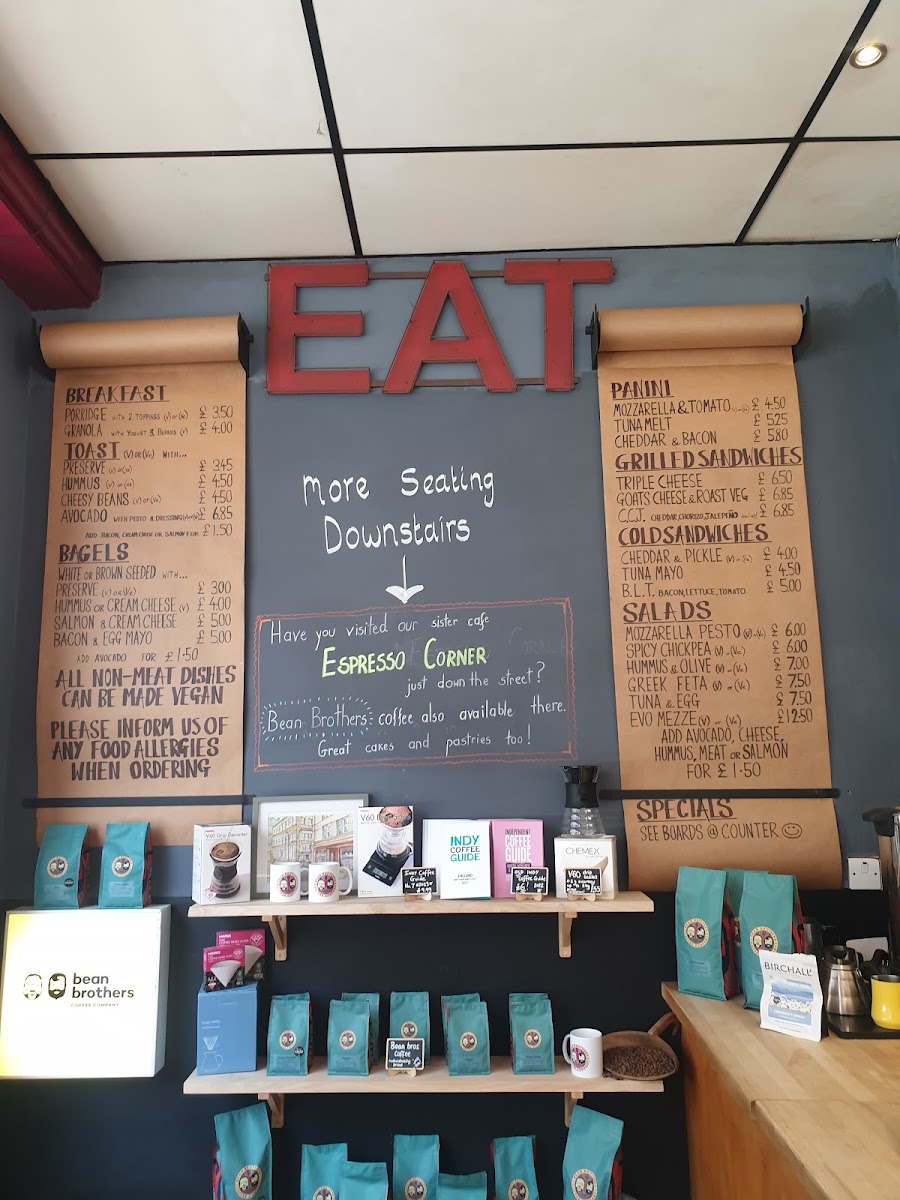 EAT
BREAKFAST
PORRIDGE WITH 2 TOPPINGS (V) OR (Ve) £ 3.50
GRANOLA WITH YOGURT & BERRIES (V) £ 4.00
TOAST (V) OR (Ve) WITH...
PRESERVE (V) OR (Ve) £ 3.45
HUMMUS (V) OR (Ve) £ 4.50
CHEESY BEANS (V) OR (Ve) £ 4.50
AVOCADO WITH PESTO & DRESSING (V) OR (Ve) £ 6.85
ADD BACON, CREAM CHEESE OR SALMON FOR £1.50
BAGELS
WHITE OR BROWN SEEDED WITH...
PRESERVE (V) OR (Ve) £ 3.00
HUMMUS OR CREAM CHEESE (V) £ 4.00
SALMON & CREAM CHEESE £ 5.00
BACON & EGG MAYO £ 5.00
ADD AVOCADO FOR £1.50
ALL NON-MEAT DISHES
CAN BE MADE VEGAN
PLEASE INFORM US OF
ANY FOOD ALLERGIES
WHEN ORDERING
More Seating
Downstairs
Have you visited our sister cafe
ESPRESSO CORNER
just down the street?
Bean Brothers coffee also available there.
Great cakes and pastries too!
PANINI
MOZZARELLA & TOMATO £ 4.50
TUNA MELT £ 5.25
CHEDDAR & BACON £ 5.80
GRILLED SANDWICHES
TRIPLE CHEESE £ 6.50
GOATS CHEESE & ROAST VEG £ 6.85
C.C.J. CHEDDAR, CHORIZO, JALEPEÑO £ 6.85
COLD SANDWICHES
CHEDDAR & PICKLE (V) - (Ve) £ 4.00
TUNA MAYO £ 4.50
B.L.T. BACON, LETTUCE, TOMATO £ 5.00
SALADS
MOZZARELLA PESTO (V) - (Ve) £ 6.00
SPICY CHICKPEA (V) - (Ve) £ 6.00
HUMMUS & OLIVE (V) - (Ve) £ 7.00
GREEK FETA (V) - (Ve) £ 7.50
TUNA & EGG £ 7.50
EVO MEZZE (V) - (Ve) £12.50
ADD AVOCADO, CHEESE,
HUMMUS, MEAT OR SALMON
FOR £1.50
SPECIALS
SEE BOARDS @ COUNTER
V60 Drip Decanter
V60
INDY
COFFEE
GUIDE
INDEPENDENT
COFFEE
GUIDE
CHEMEX
bean
brothers
COFFEE COMPANY
Bean bros
Coffee
BIRCHALL